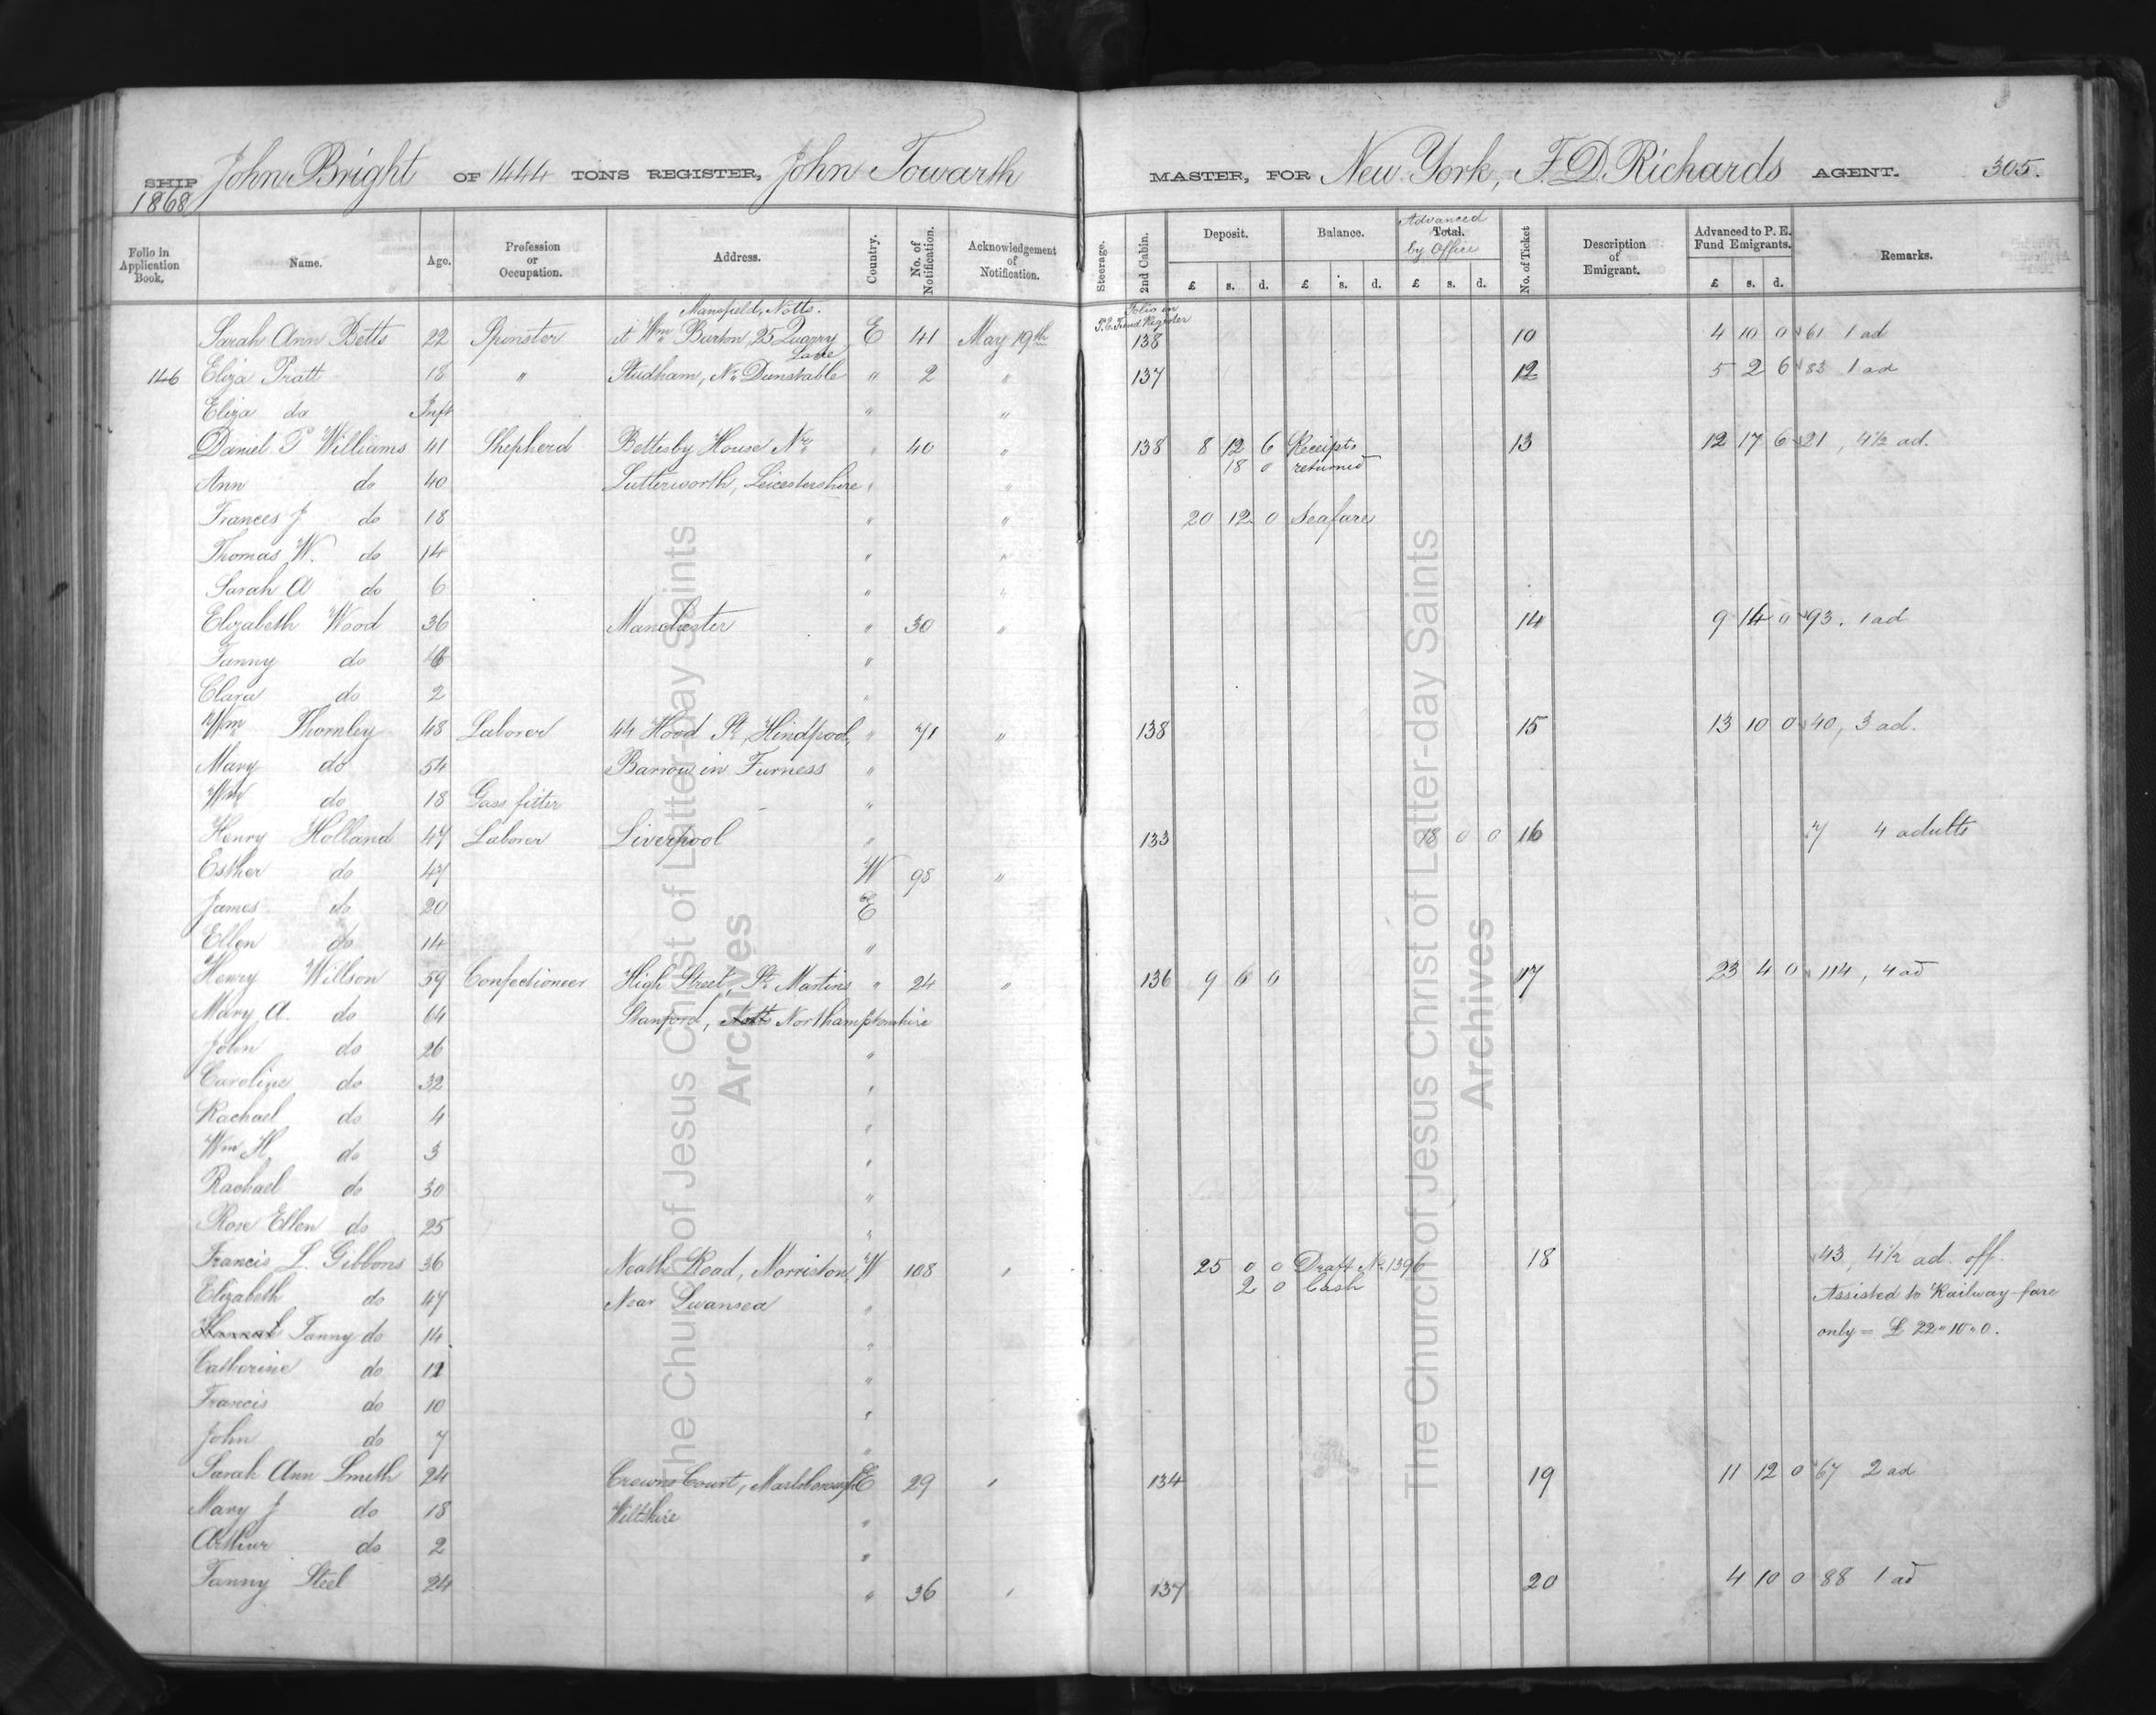 SHIP John Bright OF 1444 TONS REGISTER, John Towarth MASTER, FOR New York, F. D. Richards AGENT. 305.
1868
Folio in Application Book. Name. Age. Profession or Occupation. Address. Country. No. of Notification. Acknowledgement of Notification. Steerage. 2nd Cabin. Deposit. Balance. Advanced Total. by Office No. of Ticket Description of Emigrant. Advanced to P. E. Fund Emigrants. Remarks.
£ s. d. £ s. d. £ s. d. £ s. d.
Mansfield, Notts. Folio in P. E. Fund Register
Sarah Ann Betts 22 Spinster at Wm Burton, 25 Quarry Lane E 41 May 19th 138 10 4 10 0 61 1 ad
146 Eliza Pratt 18 " Studham, Nr Dunstable " 2 " 137 12 5 2 6 83 1 ad
Eliza do Inft " "
Daniel P Williams 41 Shepherd Bettesby House Nr " 40 " 138 8 12 6 Receipts 13 12 17 6 21, 4½ ad.
18 0 returned
Ann do 40 Lutterworth, Leicestershire " "
Frances J do 18 " " 20 12 0 Seafare
Thomas W. do 14 " "
Sarah A do 6 " "
Elizabeth Wood 36 Manchester " 30 " 14 9 14 0 93. 1 ad
Fanny do 6 "
Clara do 2 "
Wm Thornley 48 Laborer 44 Hood St, Hindpool, " 71 " 138 15 13 10 0 40, 3 ad.
Mary do 54 Barrow in Furness "
Wm do 18 Gass fitter "
Henry Holland 47 Laborer Liverpool " 133 18 0 0 16 7 4 adults
Esther do 47 W 98 "
James do 20 E
Ellen do 14 "
Henry Willson 59 Confectioner High Street, St. Martins " 24 " 136 9 6 0 17 23 4 0 114, 4 ad
Mary A. do 64 Stanford, Notts Northamptonshire
John do 26 "
Caroline do 32 "
Rachael do 4 "
Wm H. do 3 "
Rachael do 30 "
Rose Ellen do 25 "
Francis L. Gibbons 36 Neath Road, Morriston, W 108 " 25 0 0 Draft No. 1396 18 43, 4½ ad. off.
Elizabeth do 47 Near Swansea " 2 0 Cash Assisted to Railway-fare
Hannah Fanny do 14 " only = £ 22"10"0.
Catherine do 12 "
Francis do 10 "
John do 7 "
Sarah Ann Smith 24 Crowns Court, Marlborough E 29 " 134 19 11 12 0 67 2 ad
Mary J do 18 Wiltshire "
Arthur do 2 "
Fanny Steel 24 " 36 " 137 20 4 10 0 88 1 ad
The Church of Jesus Christ of Latter-day Saints
Archives
The Church of Jesus Christ of Latter-day Saints
Archives